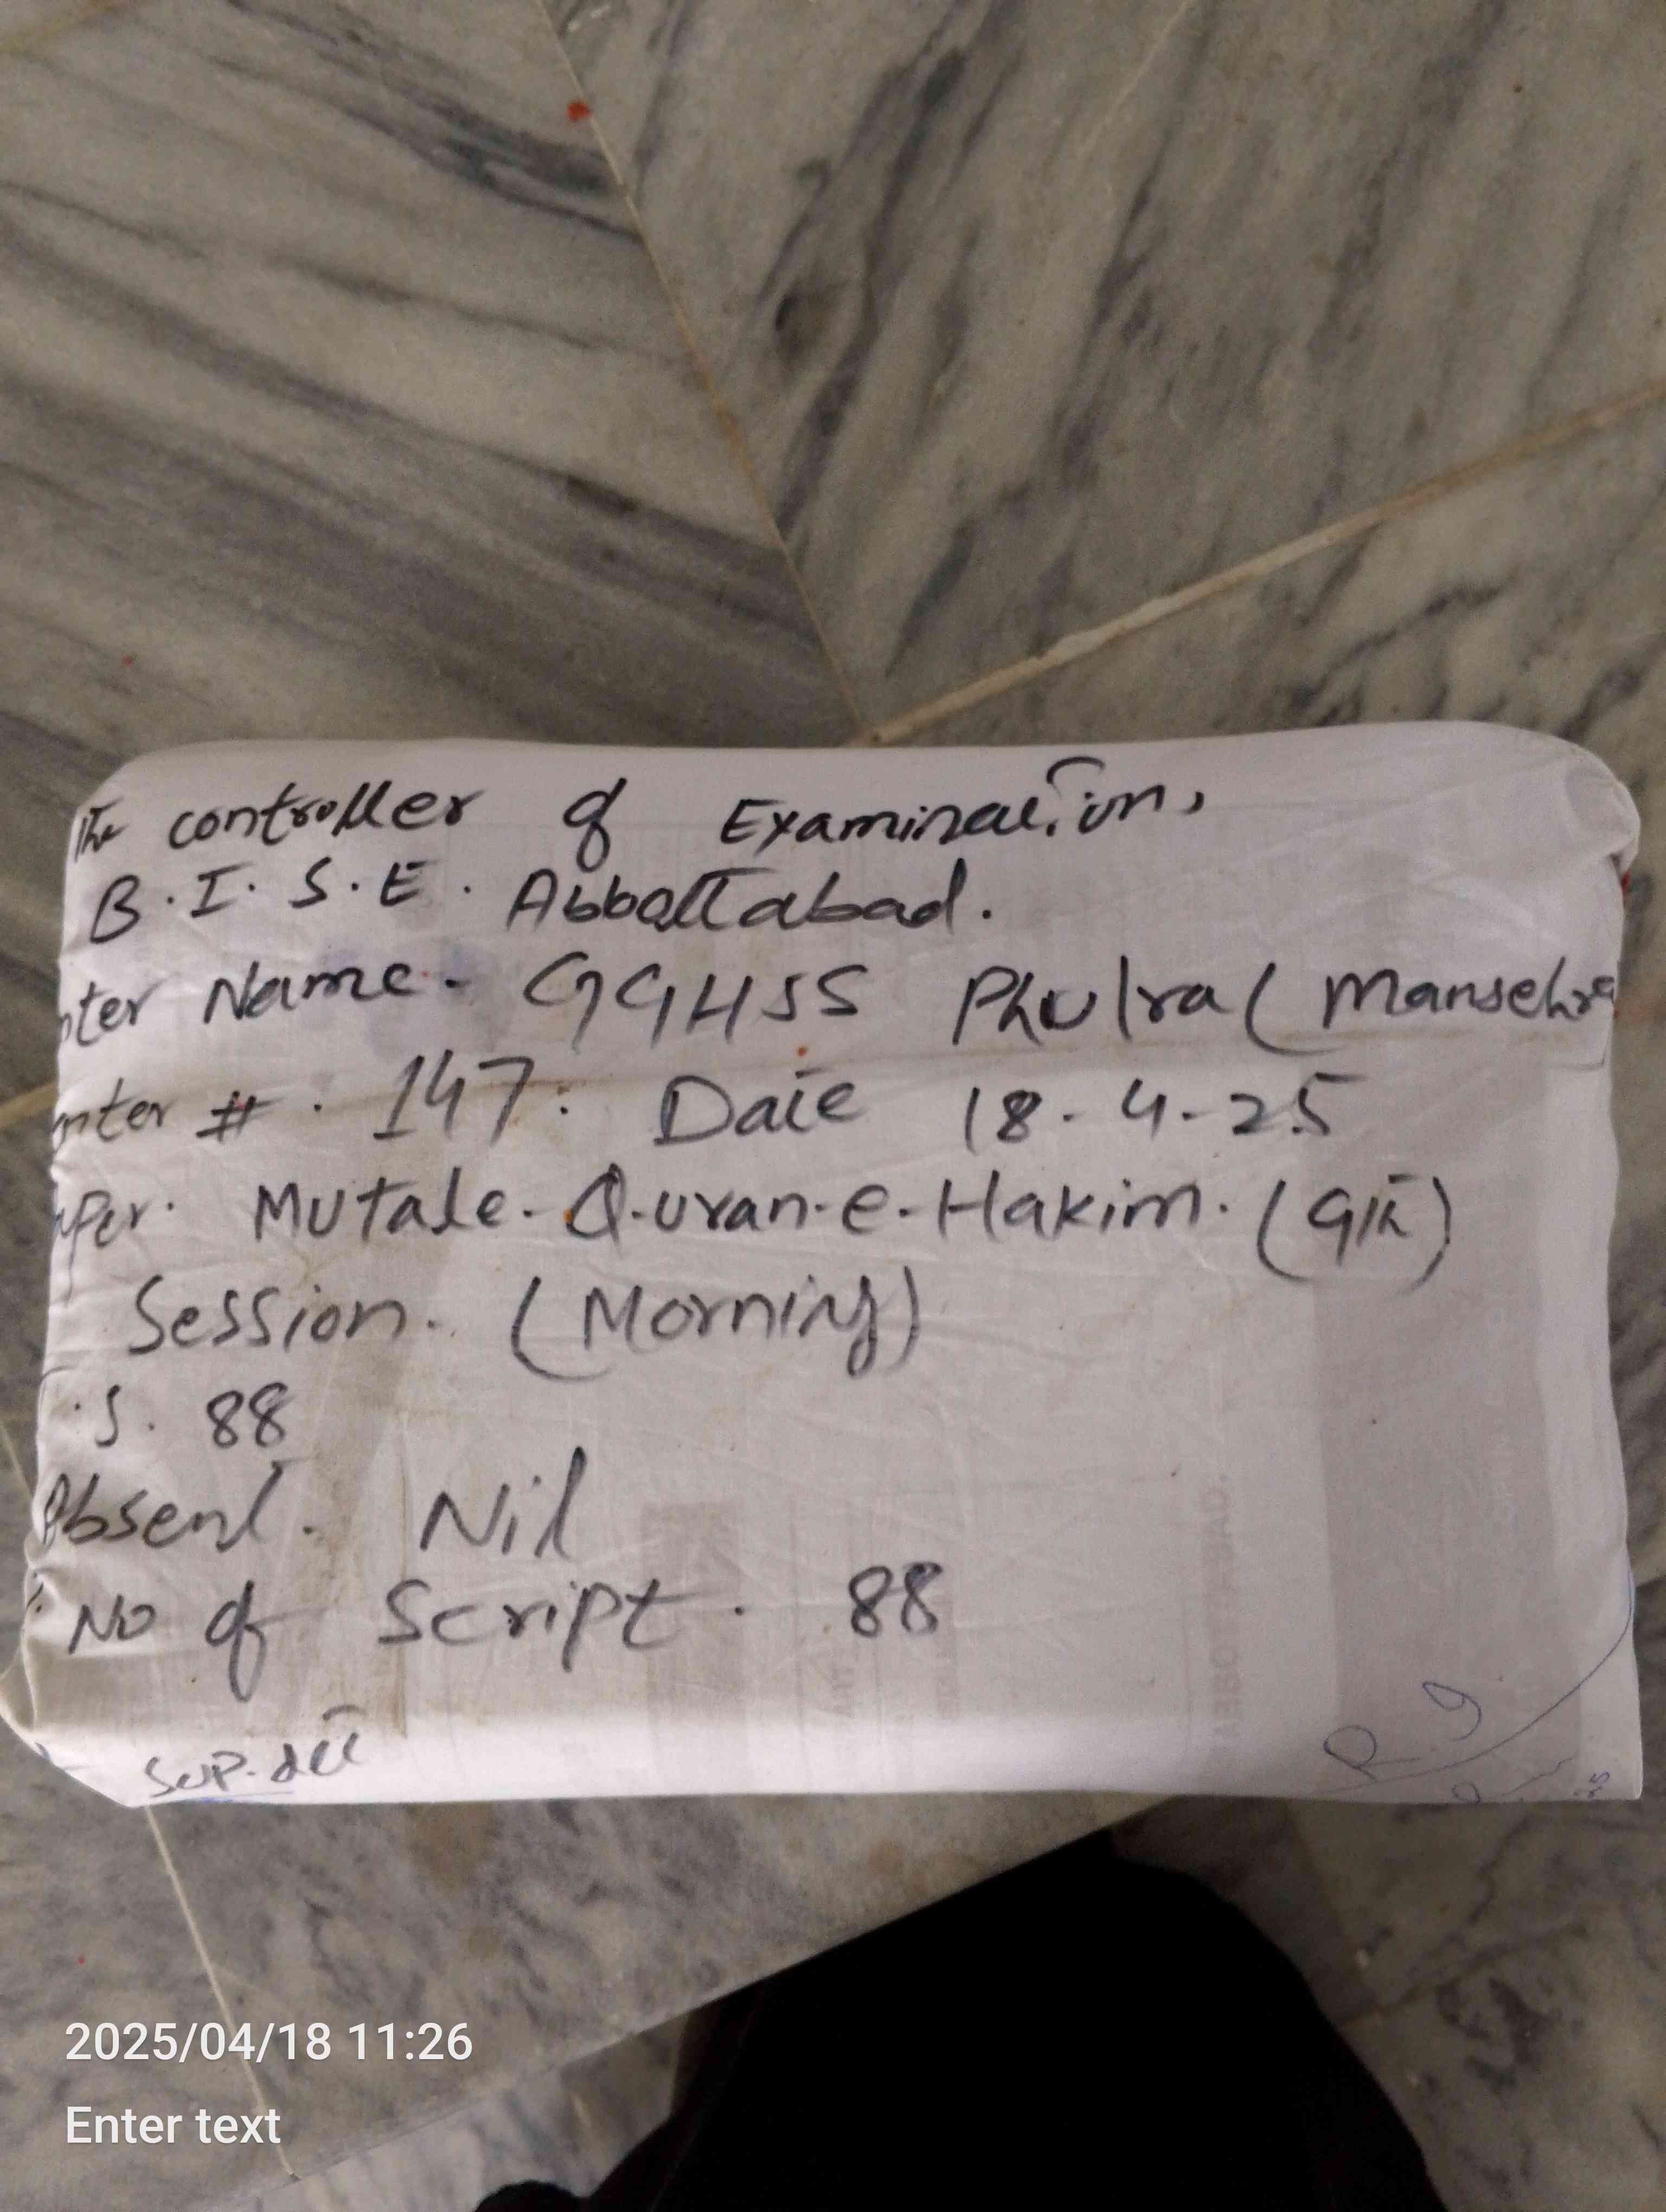 The controller of Examination,
B.I.S.E. Abbottabad.
nter Name. GGHSS Phulra (Mansehra
nter #. 147. Date 18-4-25
aper. Mutale-Quran-e-Hakim. (9th)
Session. (Morning)
.S. 88
Absent. Nil
No of Script. 88
Sup.dtt
2025/04/18 11:26
Enter text